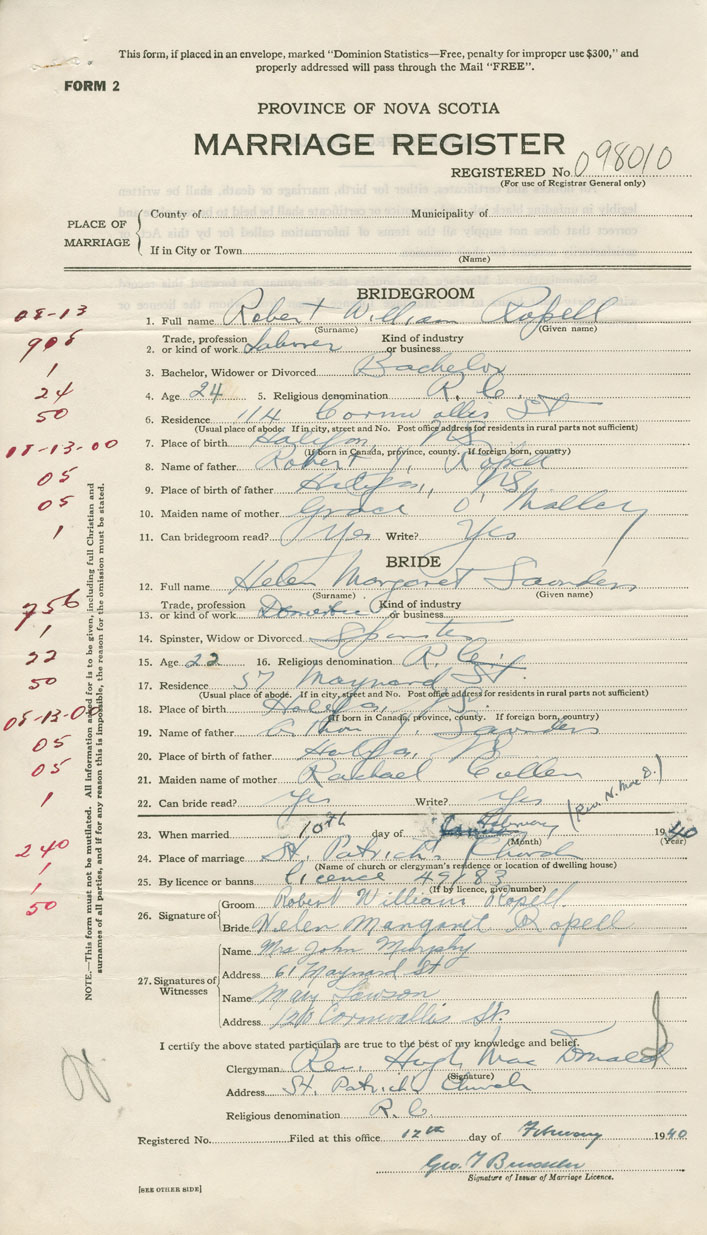 This form, if placed in an envelope, marked "Dominion Statistics—Free, penalty for improper use $300," and
properly addressed will pass through the Mail "FREE".
FORM 2
PROVINCE OF NOVA SCOTIA
MARRIAGE REGISTER
REGISTERED No. 098010
(For use of Registrar General only)
PLACE OF MARRIAGE
County of
Municipality of
If in City or Town
(Name)
BRIDEGROOM
08-13
1. Full name Robert William Ropell
(Surname) (Given name)
908
Trade, profession Kind of industry
2. or kind of work Laborer or business
1
3. Bachelor, Widower or Divorced Bachelor
24
4. Age 24 5. Religious denomination R. C.
50
6. Residence 114 Cornwallis St
(Usual place of abode. If in city, street and No. Post office address for residents in rural parts not sufficient)
08-13-00
7. Place of birth Halifax, NS
(If born in Canada, province, county. If foreign born, country)
05
8. Name of father Robert J. Ropell
9. Place of birth of father Halifax, NS
05
10. Maiden name of mother Grace O'Malley
1
11. Can bridegroom read? Yes Write? Yes
BRIDE
12. Full name Helen Margaret Saunders
(Surname) (Given name)
756
Trade, profession Kind of industry
13. or kind of work Domestic or business
1
14. Spinster, Widow or Divorced Spinster
22
15. Age 22 16. Religious denomination R. C.
50
17. Residence 57 Maynard St.
(Usual place of abode. If in city, street and No. Post office address for residents in rural parts not sufficient)
08-13-00
18. Place of birth Halifax, NS.
(If born in Canada, province, county. If foreign born, country)
05
19. Name of father J. Saunders
05
20. Place of birth of father Halifax, NS
21. Maiden name of mother Rachael Cullen
1
22. Can bride read? Yes Write? Yes
(Rev. H. Mac D.)
23. When married 10th day of February 1940
(Month) (Year)
240
24. Place of marriage St. Patrick's Church
(Name of church or clergyman's residence or location of dwelling house)
1
25. By licence or banns licence 49183
(If by licence, give number)
1
50
26. Signature of
Groom Robert William Ropell.
Bride Helen Margaret Ropell
27. Signatures of Witnesses
Name Mrs John Murphy
Address 61 Maynard St
Name Mary Lawson
Address 120 Cornwallis St.
I certify the above stated particulars are true to the best of my knowledge and belief.
Clergyman Rev. Hugh Mac Donald
(Signature)
Address St. Patrick's Church
Religious denomination R. C
Registered No. Filed at this office 12th day of February 1940
Geo. T
Signature of Issuer of Marriage Licence.
[SEE OTHER SIDE]
NOTE.—This form must not be mutilated. All information asked for is to be given, including full Christian and
surnames of all parties, and if for any reason this is impossible, the reason for the omission must be stated.